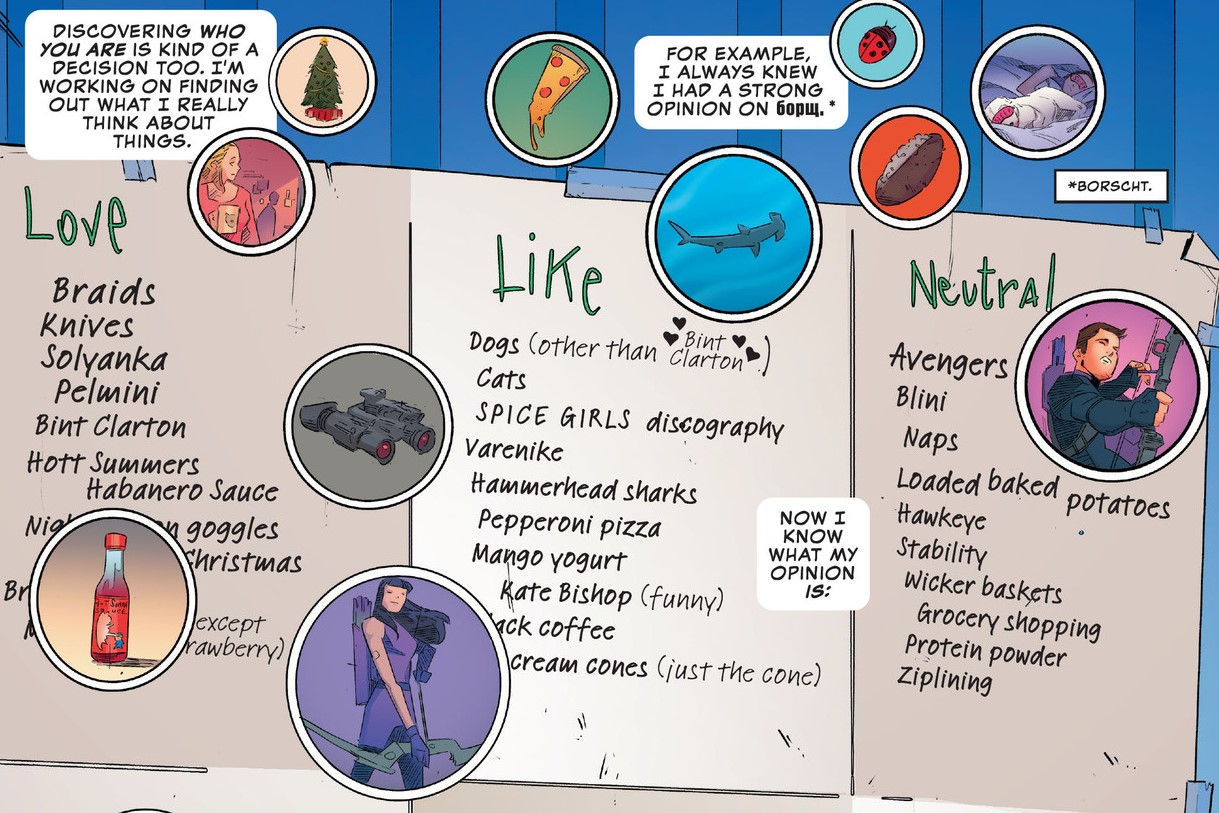 DISCOVERING WHO
YOU ARE IS KIND OF A
DECISION TOO. I'M
WORKING ON FINDING
OUT WHAT I REALLY
THINK ABOUT
THINGS.
FOR EXAMPLE,
I ALWAYS KNEW
I HAD A STRONG
OPINION ON борщ.*
*BORSCHT.
Love
Braids
Knives
Solyanka
Pelmini
Bint Clarton
Hott Summers
Habanero Sauce
goggles
Christmas
(except
Like
Dogs (other than Bint
Clarton)
Cats
SPICE GIRLS discography
Varenike
Hammerhead sharks
Pepperoni pizza
Mango yogurt
Kate Bishop (funny)
coffee
cream cones (just the cone)
NOW I
KNOW
WHAT MY
OPINION
IS:
Neutral
Avengers
Blini
Naps
Loaded baked potatoes
Hawkeye
Stability
Wicker baskets
Grocery shopping
Protein powder
Ziplining